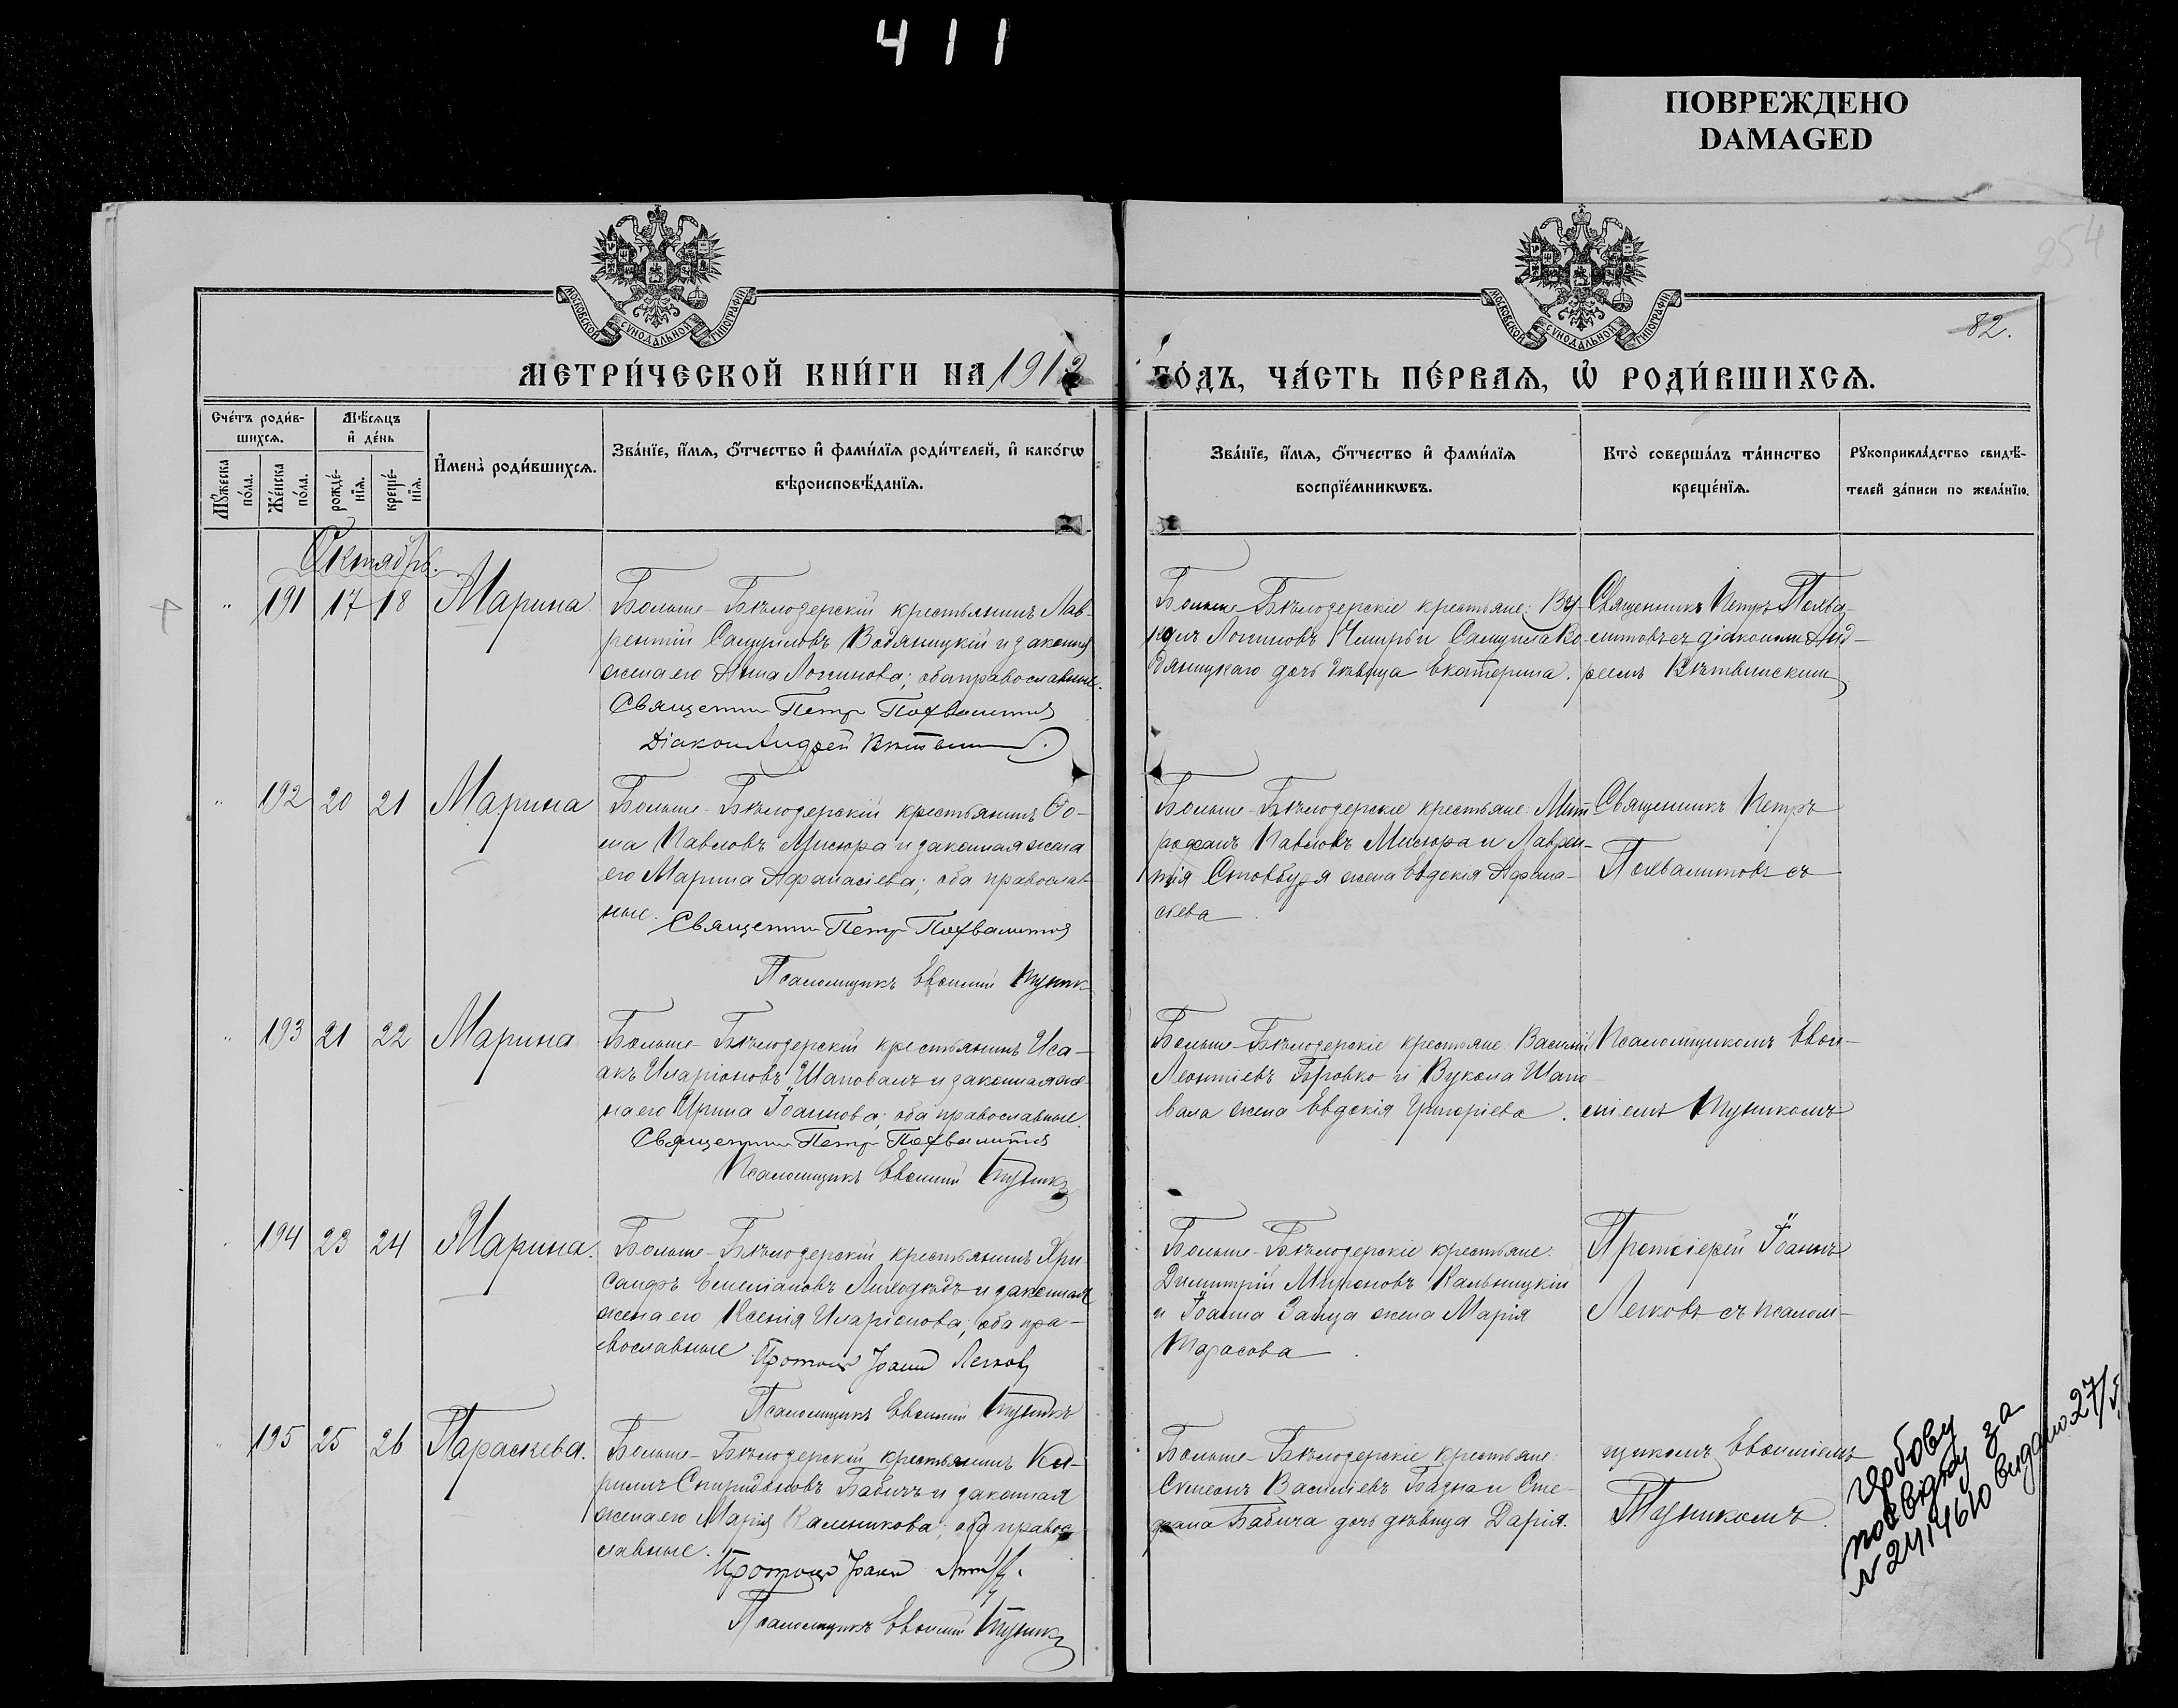 411
ПОВРЕЖДЕНО
DAMAGED
254
82.
МОСКОВСКОЙ СѴНОДАЛЬНОЙ ТИПОГРАФІИ
МОСКОВСКОЙ СѴНОДАЛЬНОЙ ТИПОГРАФІИ
МЕТРИ́ЧЕСКОЙ КНИ́ГИ НА 1913 ГО́ДЪ, ЧА́СТЬ ПЕ́РВАѦ, Ѡ҆ РОДИ́ВШИХСѦ.
Сче́тъ роди́в-
шихсѧ.
Мѣ́сѧцъ
и҆ де́нь
Мꙋ́жеска по́ла.
Же́нска по́ла.
рожде́-нїѧ.
креще́-нїѧ.
И҆мена̀ роди́вшихсѧ.
Зва́нїе, и҆́мѧ, ѻ҆́тчество и҆ фами́лїѧ роди́телей, и҆ како́гѡ
вѣроисповѣ́данїѧ.
Зва́нїе, и҆́мѧ, ѻ҆́тчество и҆ фами́лїѧ
воспрїе́мникѡвъ.
Кто̀ соверша́лъ та́инство
креще́нїѧ.
Рꙋкоприкла́дство свидѣ́-
телей за́писи по жела́нїю.
Октябрь.
191 17 18 Марина.
Больше-Бѣлозерскій крестьянинъ Лав-
рентій Самуиловъ Водяницкій и законная
жена его Анна Логинова; оба православные.
Священник Петр Похвалитов
Діакон Андрей
Больше-Бѣлозерскіе крестьяне:
Логиновъ и Самуила Во-
дяницкаго дочь дѣвица Екатерина.
Священникъ Петръ Похва-
литовъ съ діакономъ Анд-
реемъ
192 20 21 Марина
Больше-Бѣлозерскій крестьянинъ Ѳо-
ма Павловъ Мисюра и законная жена
его Марина Афанасіева; оба православ-
ные.
Священник Петр Похвалитов
Псаломщикъ Евѳимій Тупик
Больше-Бѣлозерскіе крестьяне: Мит-
рофанъ Павловъ Мисюра и Лаврен-
тія Стовбура жена Евдокія Афана-
сьева
Священникъ Петръ
Похвалитовъ съ
193 21 22 Марина
Больше-Бѣлозерскій крестьянинъ Иса-
акъ Иларіоновъ Шаповалъ и законная же-
на его Ирина Іоаннова; оба православные.
Священник Петр Похвалитов
Псаломщикъ Евѳимій Тупикъ
Больше-Бѣлозерскіе крестьяне: Василій
Леонтіевъ Бровко и Вукола Шапо-
вала жена Евдокія Григоріева.
Псаломщикомъ Евѳи-
міемъ Тупикомъ
194 23 24 Марина.
Больше-Бѣлозерскій крестьянинъ Хри-
санфъ Емеліановъ Лиходѣдъ и законная
жена его Ксенія Иларіонова; оба пра-
вославные.
Протоіер Іоанн Легков
Псаломщикъ Евѳимій Тупикъ
Больше-Бѣлозерскіе крестьяне:
Димитрій Мироновъ Кальницкій
и Іоанна Зайца жена Марія
Тарасова.
Протоіерей Іоаннъ
Легковъ съ псалом-
195 25 26 Параскева.
Больше-Бѣлозерскій крестьянинъ Ки-
риллъ Спиридоновъ Бабичъ и законная
жена его Марія Калиникова; оба право-
славные.
Протоіер Іоанн
Псаломщикъ Евѳимій Тупикъ
Больше-Бѣлозерскіе крестьяне:
Симеонъ Василіевъ Базна и Сте-
фана Бабича дочь дѣвица Дарія.
щикомъ Евѳиміемъ
Тупикомъ.
посвідку за
N 2414610 видано 27/